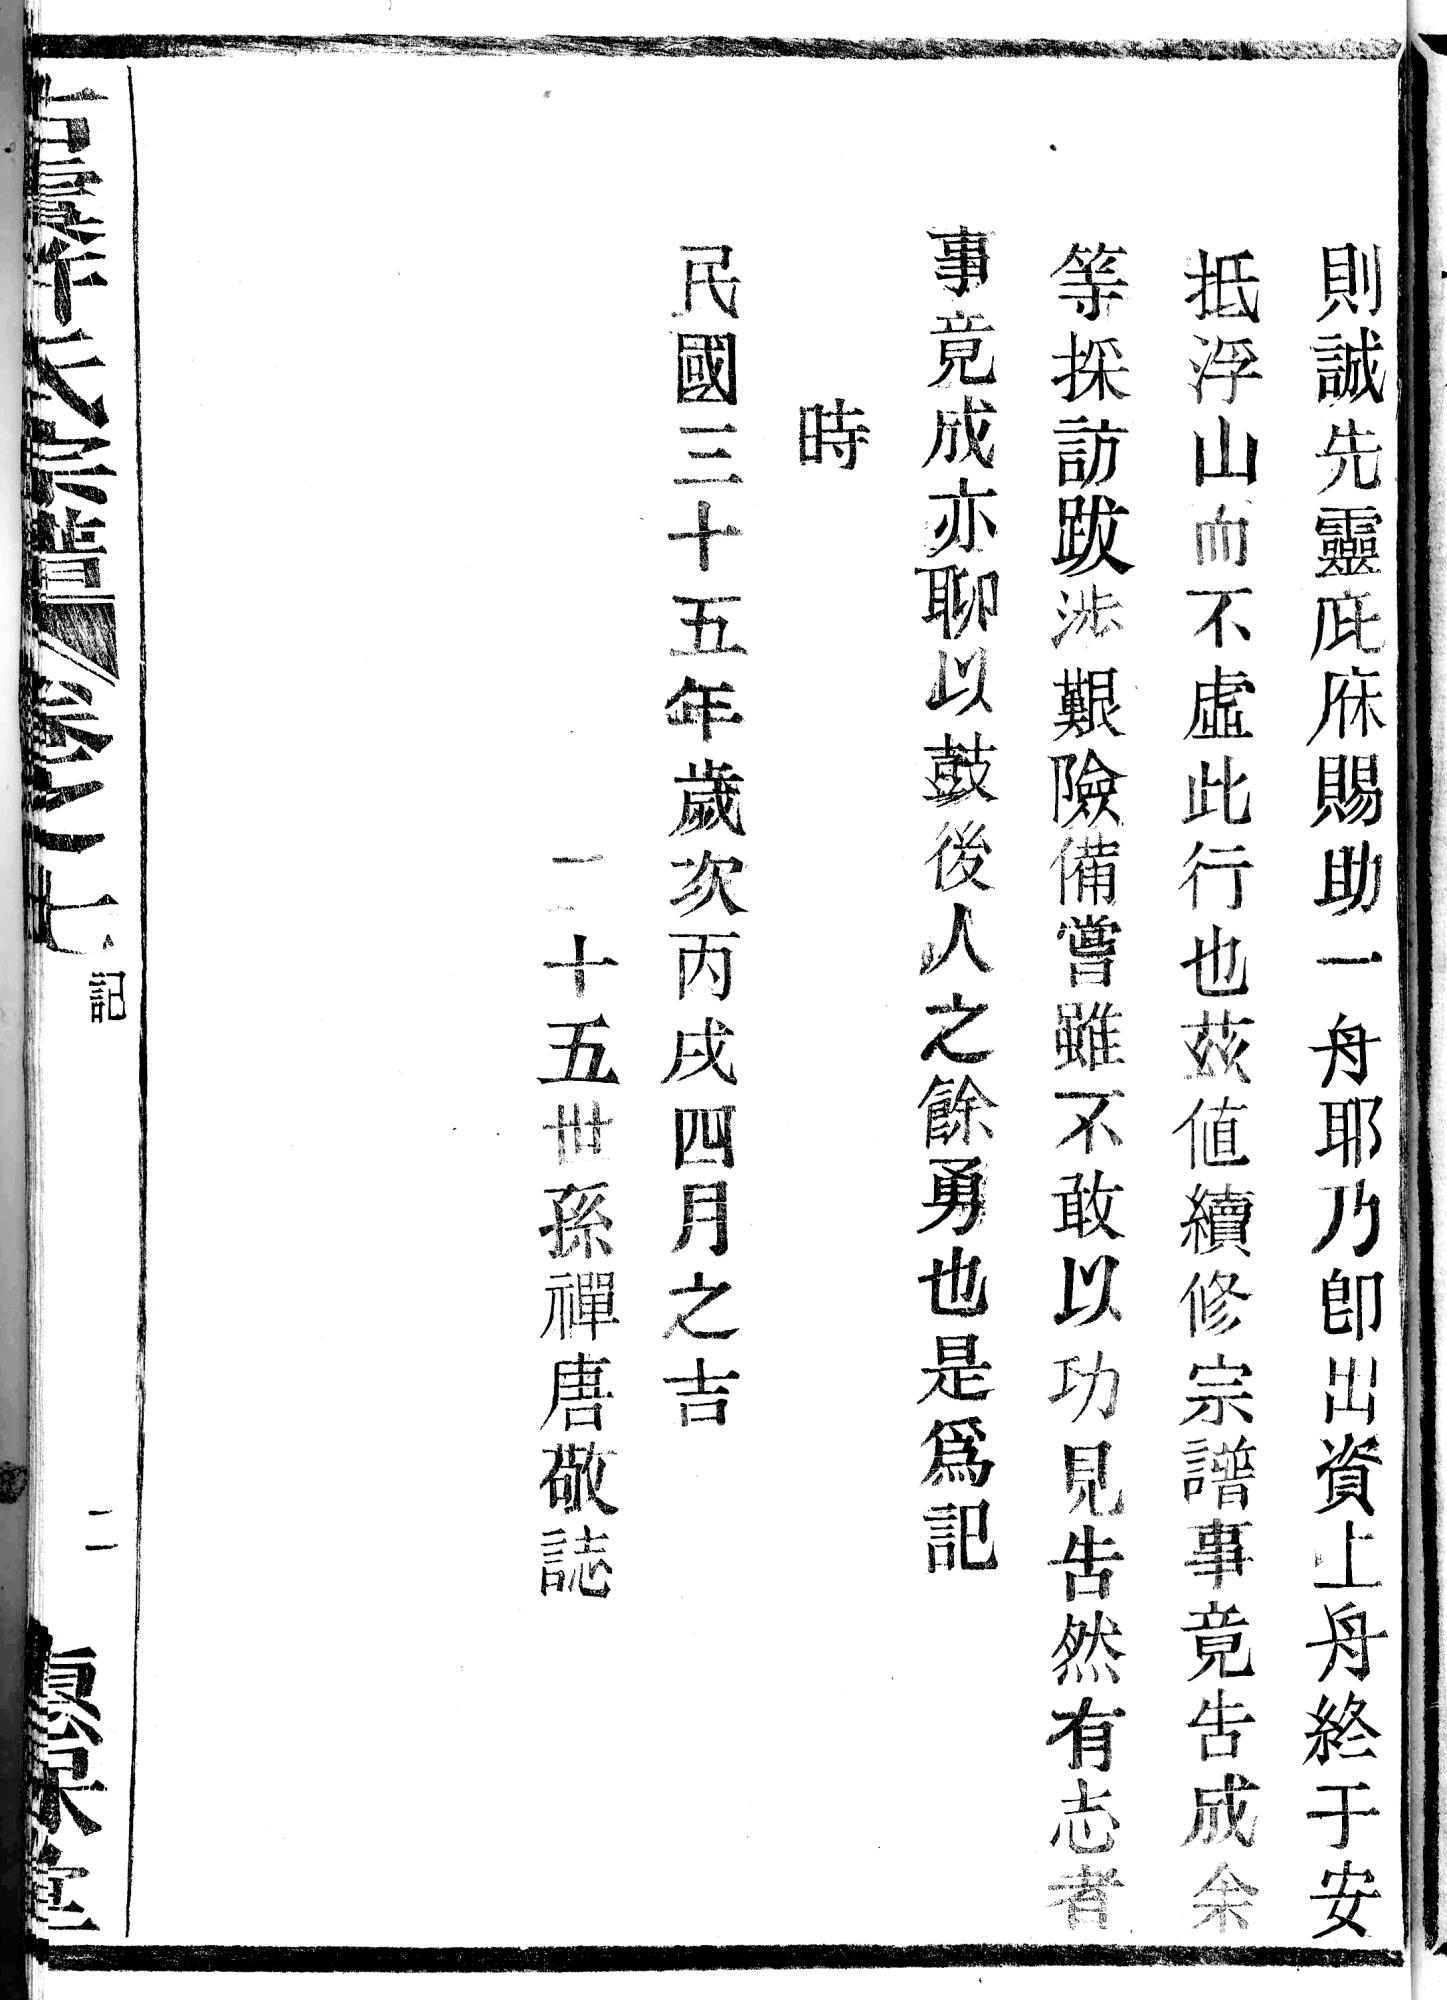 則誠先靈庇庥賜助一舟耶乃卽出資上舟終于安
抵浮山而不虛此行也茲値續修宗譜事竟告成余
等採訪跋涉艱險備嘗雖不敢以功見告然有志者
事竟成亦聊以鼓後人之餘勇也是爲記
時
民國三十五年歲次丙戌四月之吉
二十五世孫禪唐敬誌
氏宗譜 卷之七 記 二 堂